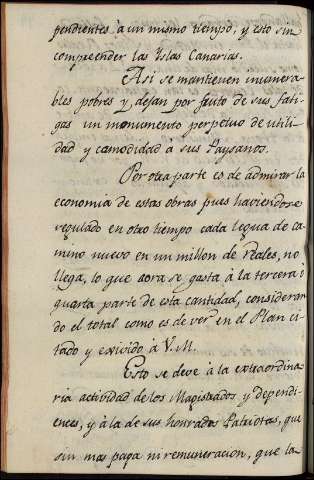 pendientes à un mismo tiempo, y esto sin
comprender las Yslas Canarias.
Asi se mantienen inumera-
bles pobres y dejan por fruto de sus fati-
gas un monumento perpetuo de utili-
dad y camodidad à sus Paysanos.
Por otra parte es de admirar la
economia de estas obras pues haviendose
regulado en otro tiempo cada legua de ca-
mino nuevo en un millon de reales, no
llega, lo que aora se gasta à la tercera ò
quarta parte de esta cantidad, consideran-
do el total como es de ver en el Plan ci-
tado y exivido à V. M.
Esto se deve à la extraordina-
ria actividad de los Magistrados, y dependi-
ences, y à la de sus honrados Patriotas, que
sin mas paga ni remuneracion, que la